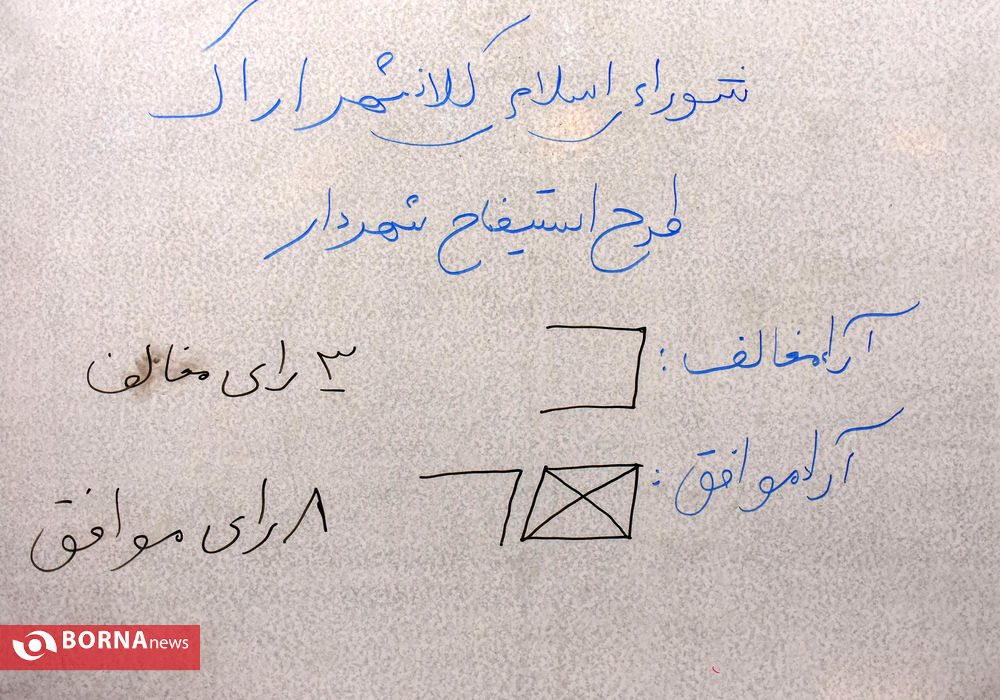 شورای اسلامی کلانشهر اراک
طرح استیضاح شهردار
آراء مخالف :
۳ رای مخالف
آراء موافق :
۸ رای موافق
BORNA news